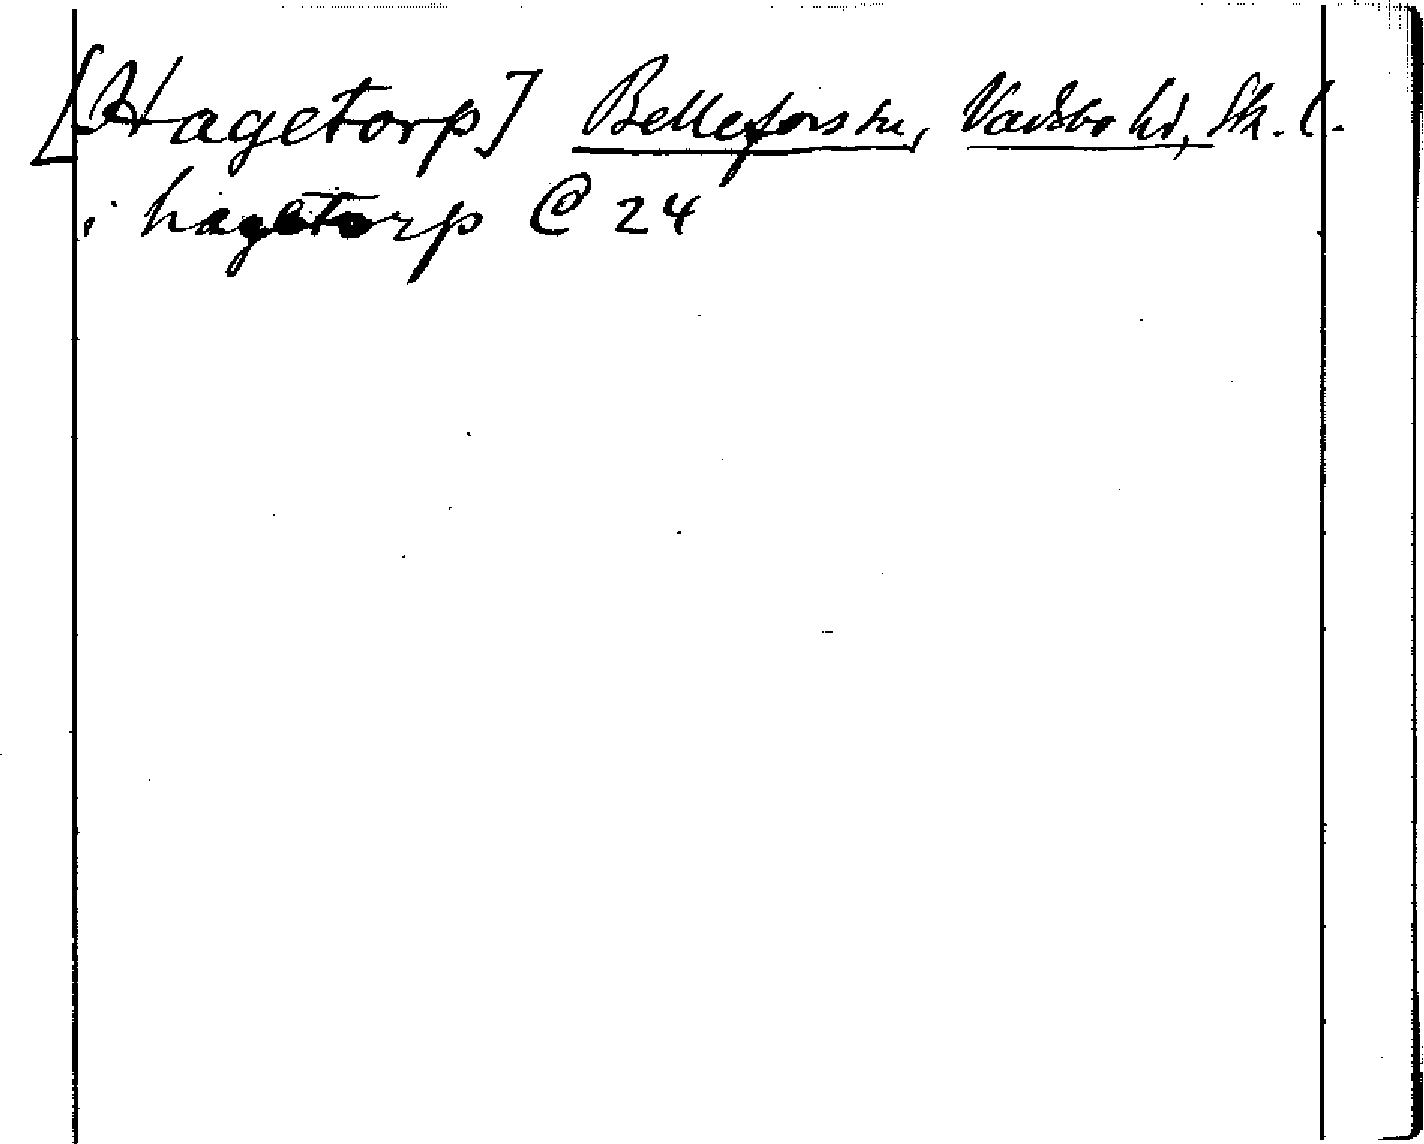 [Hagetorp] Bellefors sn, Vadsbo hd, Sk. l.
i hagetorp C 24